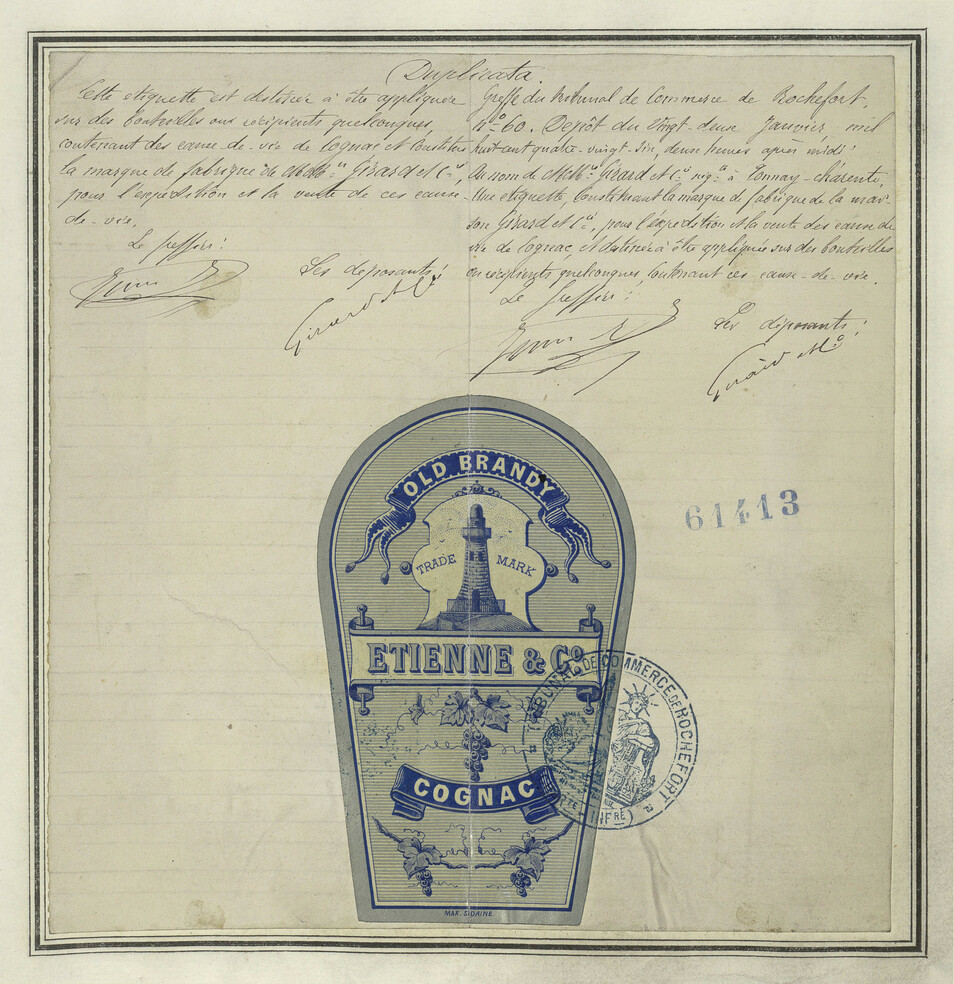 Duplicata.
Cette etiquette est destinée à être appliquée
sur des bouteilles ou récipients quelconques
contenant des eaux-de-vie de Cognac et constitue
la marque de fabrique de Girard et Cie,
pour l'expédition et la vente de ces eaux-
de-vie.
Le Greffier:
Les déposants,
Girard et Cie
Greffe du tribunal de Commerce de Rochefort,
No 60. Dépôt du vingt-deux Janvier, mil
huit cent quatre-vingt-six, deux heures après midi:
Au nom de Girard et Cie négts à Tonnay-Charente,
Une etiquette, constituant la marque de fabrique de la mai-
son Girard et Cie, pour l'expédition et la vente des eaux de
vie de Cognac, et destinée à être appliquée sur des bouteilles
ou récipients quelconques contenant ces eaux-de-vie.
Le Greffier:
Les déposants:
Girard et Cie
OLD BRANDY
TRADE MARK
ETIENNE & Co
COGNAC
MAX. SIDAINE
61413
TRIBUNAL DE COMMERCE DE ROCHEFORT
INFRE